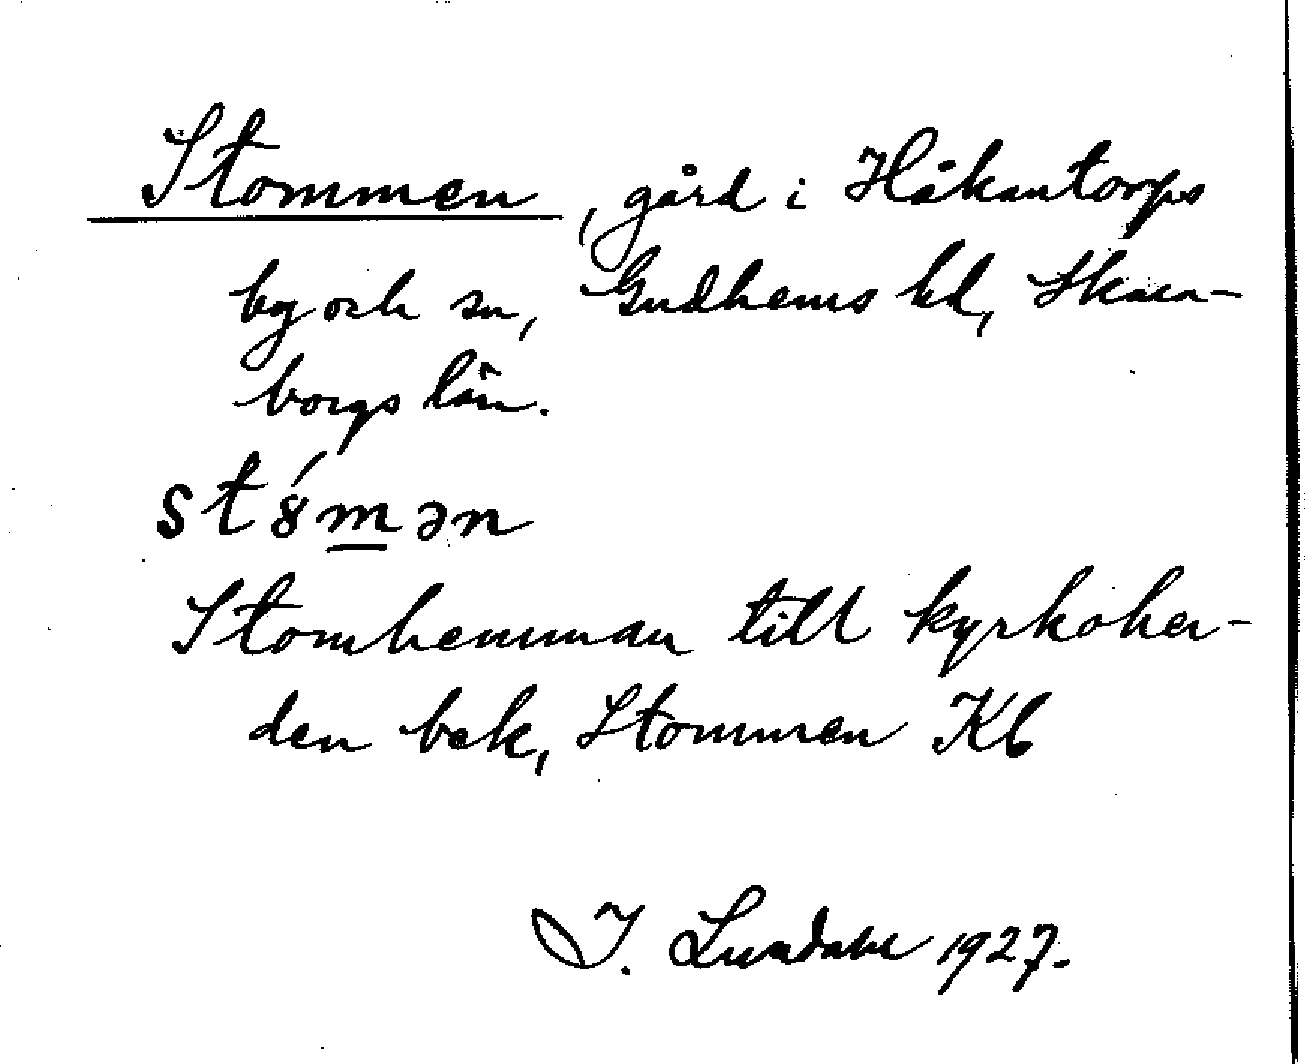 Stommen, gård i Håkantorps
by och sn, Gudhems hd, Skara-
borgs län.
st8́mən
Stomhemman till kyrkoher-
den bek, Stommen Kb
I. Lundahl 1927.